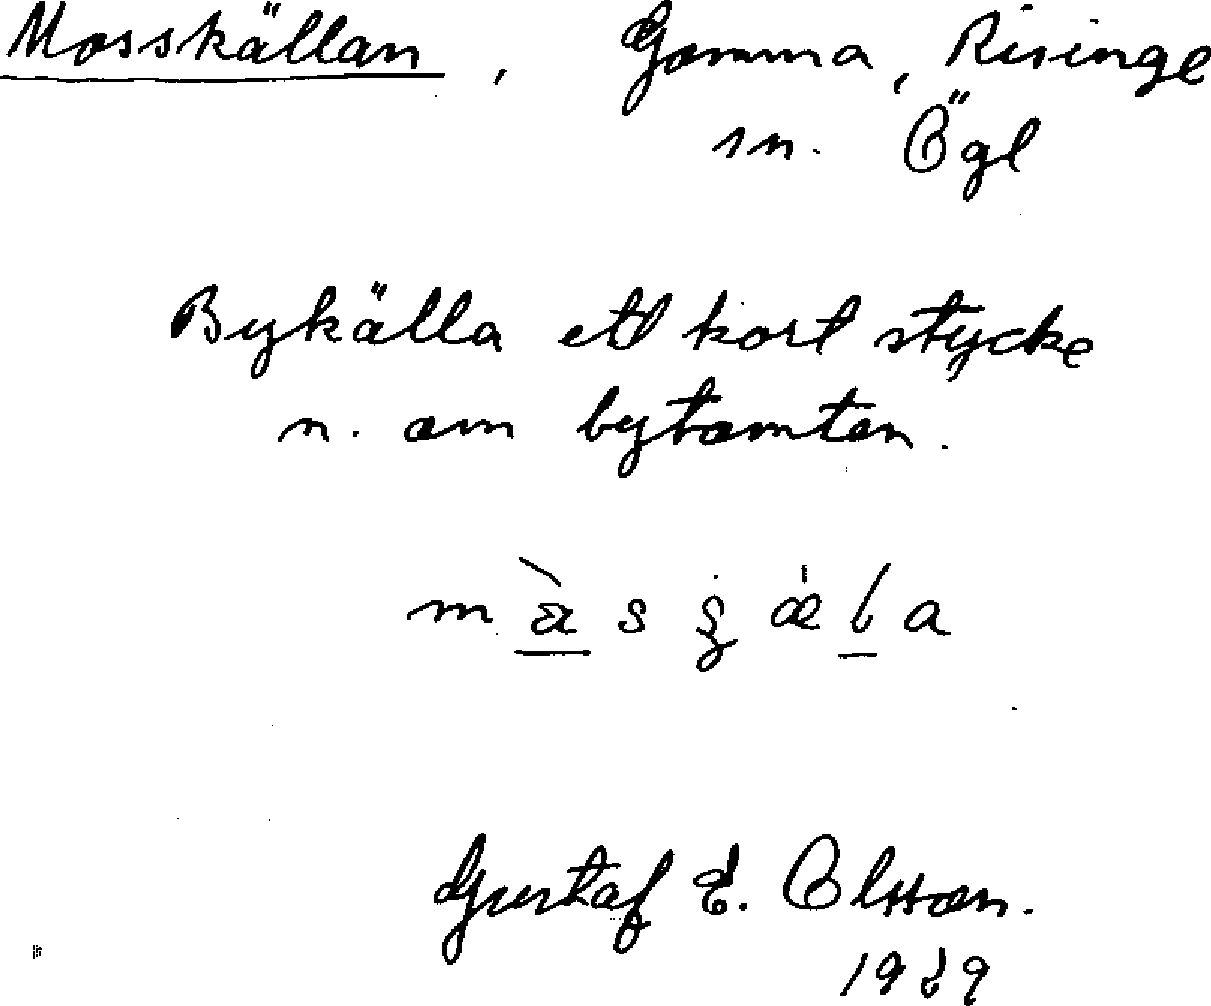 Mosskällan, Gomma, Risinge
sn. Ögl
Bykälla ett kort stycke
n. om bytomten.
Gustaf E. Olsson.